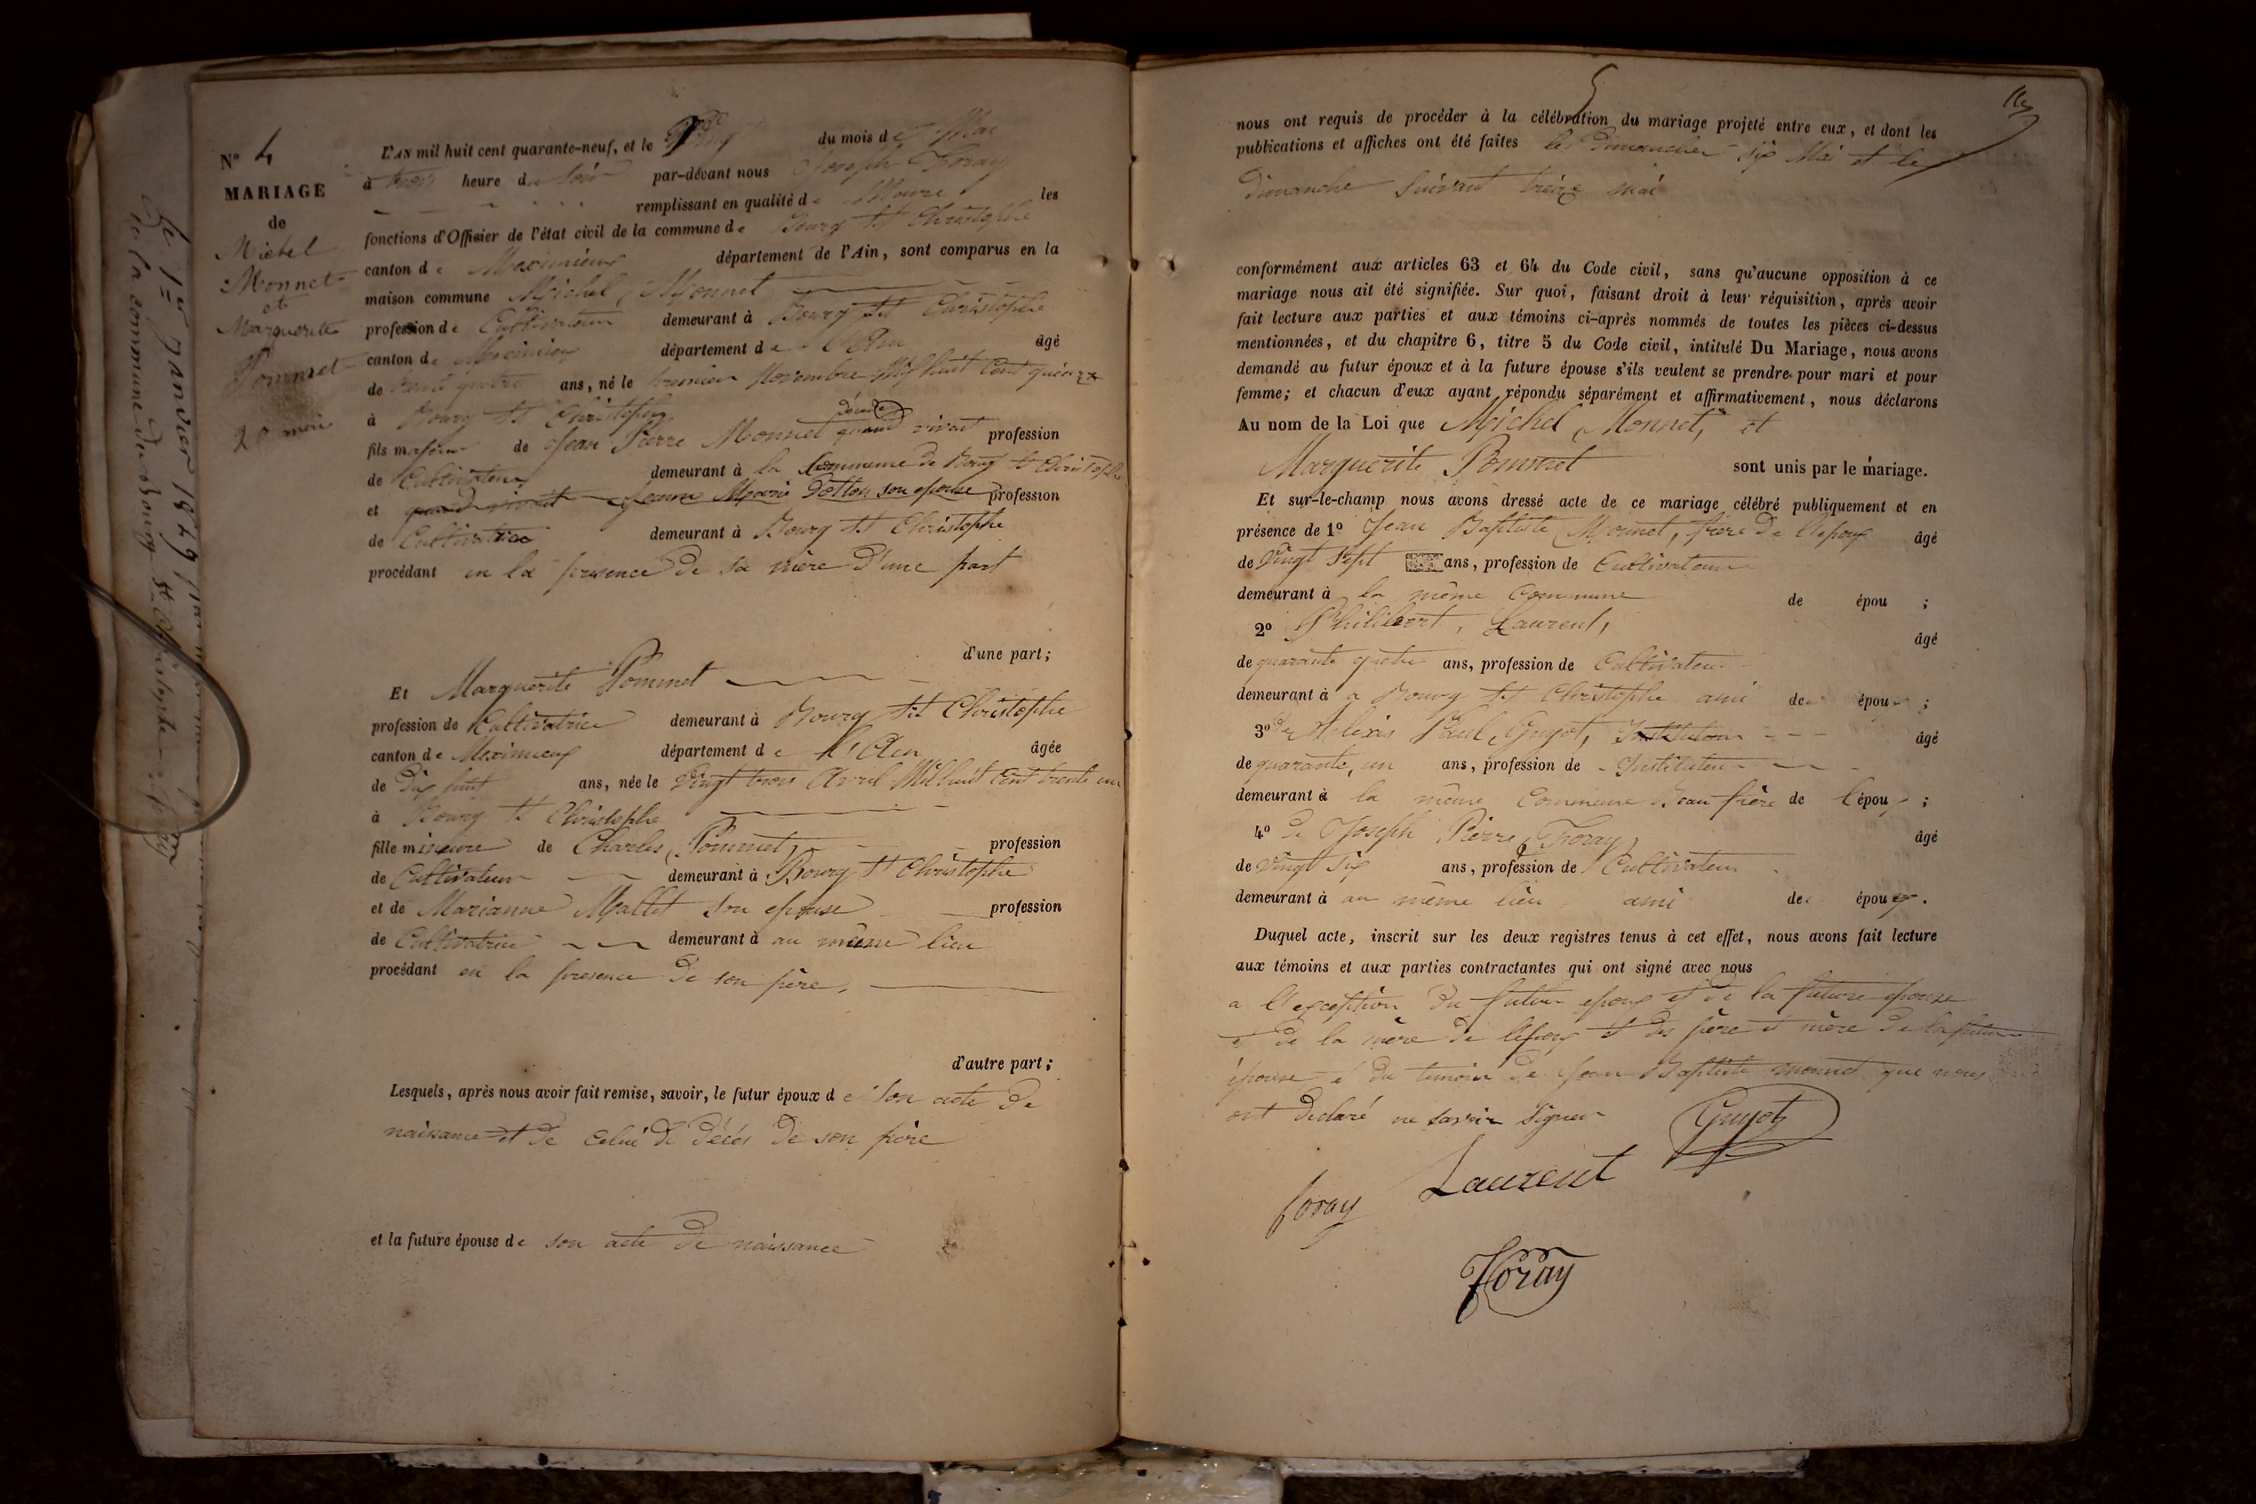 N° 4
MARIAGE
de
Michel
Monnet
et
Marguerite
Pommet
20 mai
L'AN mil huit cent quarante-neuf, et le Vingt du mois de Mai
à trois heure du soir par-devant nous Joseph Foray
remplissant en qualité de Maire les
fonctions d'Officier de l'état civil de la commune de Bourg St Christophe
canton de Meximieux département de l'Ain, sont comparus en la
maison commune Michel, Monnet
profession de Cultivateur demeurant à Bourg St Christophe
canton de Meximieux département de l'Ain âgé
de trente quatre ans, né le premier Novembre Mil huit Cent quinze
à Bourg St Christophe
décédé
fils majeur de Jean Pierre Monnet quand vivait profession
de Cultivateur demeurant à la Commune de Bourg St Christophe
et quand vivait Jeanne Marie son epouse profession
de Cultivatrice demeurant à Bourg St Christophe
procédant en la presence de sa mère d'une part
d'une part;
Et Marguerite Pommet
profession de Cultivatrice demeurant à Bourg St Christophe
canton de Meximieux département de l'Ain âgée
de dix huit ans, née le Vingt trois Avril Mil huit Cent trente un
à Bourg St Christophe
fille mineure de Charles, Pommet, profession
de Cultivateur demeurant à Bourg St Christophe
et de Marianne Mallet son epouse profession
de Cultivatrice demeurant à au même lieu
procédant en la presence de son père,
d'autre part;
Lesquels, après nous avoir fait remise, savoir, le futur époux de son acte de
naissance et de celui de décés de son père
et la future épouse de son acte de naissance
le 1er janvier 1849
de la commune de Bourg St Christophe
5
nous ont requis de procéder à la célébration du mariage projeté entre eux, et dont les
publications et affiches ont été faites les Dimanches six Mai et le
dimanche suivant treize mai
conformément aux articles 63 et 64 du Code civil, sans qu'aucune opposition à ce
mariage nous ait été signifiée. Sur quoi, faisant droit à leur réquisition, après avoir
fait lecture aux parties et aux témoins ci-après nommés de toutes les pièces ci-dessus
mentionnées, et du chapitre 6, titre 5 du Code civil, intitulé Du Mariage, nous avons
demandé au futur époux et à la future épouse s'ils veulent se prendre pour mari et pour
femme; et chacun d'eux ayant répondu séparément et affirmativement, nous déclarons
Au nom de la Loi que Michel, Monnet, et
Marguerite Pommet sont unis par le mariage.
Et sur-le-champ nous avons dressé acte de ce mariage célébré publiquement et en
présence de 1° Jean Baptiste Monnet, frère de l'epoux âgé
de Vingt Sept ans, profession de Cultivateur
demeurant à la même Commune de épou ;
2° Philibert, Laurent, âgé
de quarante quatre ans, profession de Cultivateur
demeurant à a Bourg St Christophe ami de épou ;
3° de Alexis Paul, Guyot, Instituteur âgé
de quarante, un ans, profession de Instituteur
demeurant à la même Commune Beau frère de l'époux ;
4° de Joseph Pierre, Foray, âgé
de Vingt Six ans, profession de Cultivateur
demeurant à au même lieu ami de époux.
Duquel acte, inscrit sur les deux registres tenus à cet effet, nous avons fait lecture
aux témoins et aux parties contractantes qui ont signé avec nous
a l'exception du futur epoux et de la future epouse
et de la mère de l'epoux et des père et mère de la future
épouse et du temoin de Jean Baptiste monnet que nous
ont déclaré ne savoir signer
Guyot
Laurent
foray
Foray